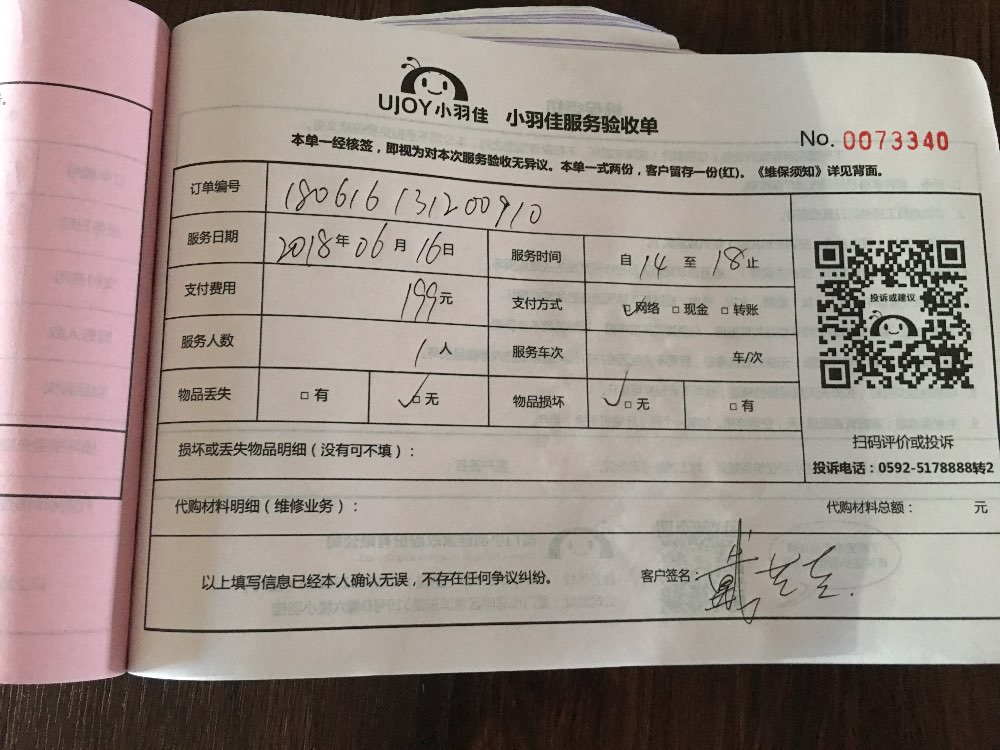 UJOY小羽佳 小羽佳服务验收单
No. 0073340
本单一经核签，即视为对本次服务验收无异议。本单一式两份，客户留存一份(红)。《维保须知》详见背面。
订单编号 180616131200910
服务日期 2018年06月16日 服务时间 自14至18止
支付费用 199元 支付方式 □网络 □现金 □转账
服务人数 1人 服务车次 车/次
物品丢失 □有 □无 物品损坏 □无 □有
投诉或建议
扫码评价或投诉
投诉电话：0592-5178888转2
损坏或丢失物品明细（没有可不填）：
代购材料明细（维修业务）： 代购材料总额： 元
以上填写信息已经本人确认无误，不存在任何争议纠纷。 客户签名：